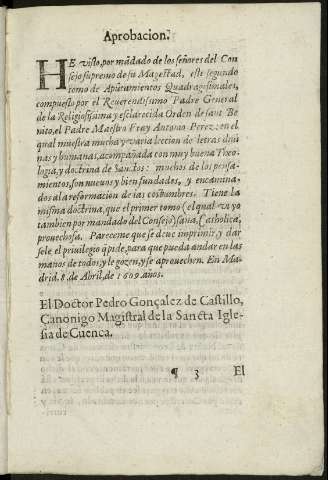 Aprobacion.
HE visto, por mãdado de los señores del Con
sejo supremo de su Magestad, este segundo
tomo de Apũtamientos Quadragesimales,
compuesto por el Reuerendissimo Padre General
de la Religiosissima y esclarecida Orden de san Be
nito, el Padre Maestro Fray Antonio Perez: en el
qual muestra mucha y varia leccion de letras diui
nas y humanas, acompañada con muy buena Theo-
logia, y doctrina de Santos: muchos de los pensa-
mientos son nueuos y bien fundados, y encamina-
dos a la reformacion de las costumbres. Tiene la
misma doctrina, que el primer tomo (el qual vi yo
tambien por mandado del Consejo) sana, Catholica,
prouechosa. Pareceme que se deue imprimir, y dar
sele el priuilegio q̃ pide, para que pueda andar en las
manos de todos, y le gozen, y se aprouechen. En Ma-
drid. 8. de Abril, de 1609. años.
El Doctor Pedro Gonçalez de Castillo,
Canonigo Magistral de la Sancta Igle-
sia de Cuenca.
¶ 3 El